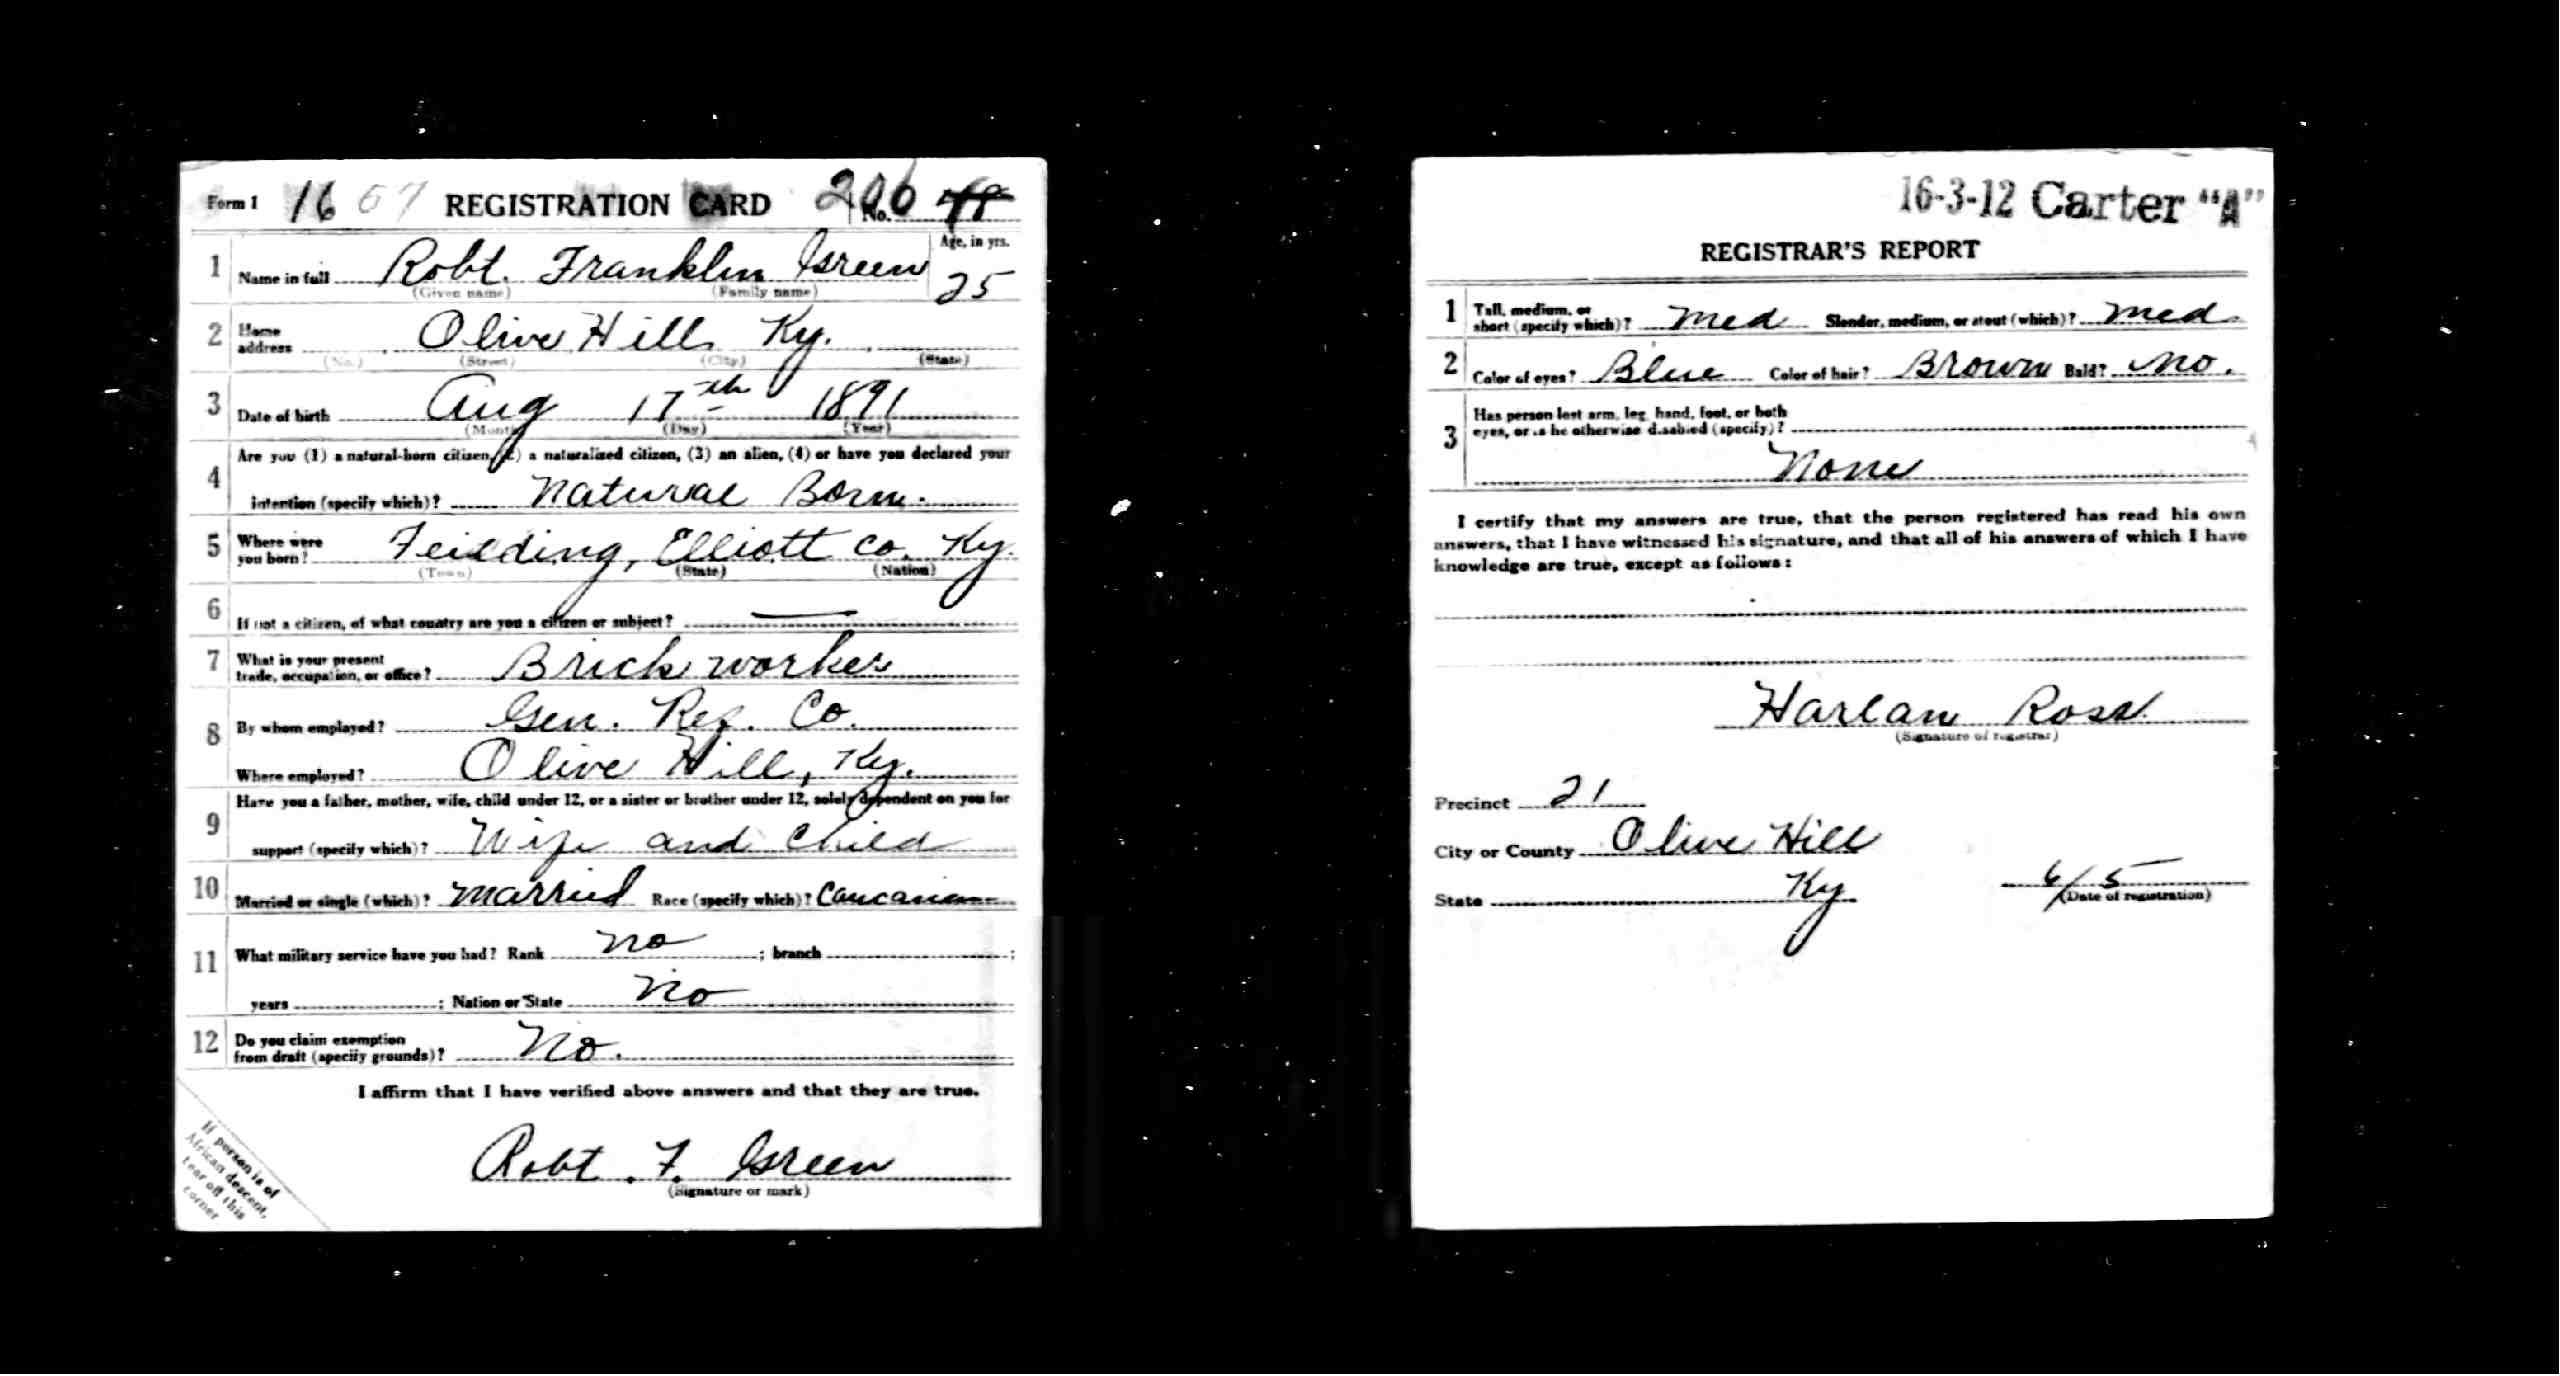 Form 1 1607 REGISTRATION CARD No. 206
Age, in yrs.
1 Name in full Robt. Franklin Green 25
(Given name) (Family name)
2 Home address Olive Hill Ky.
(No.) (Street) (City) (State)
3 Date of birth Aug 17th 1891
(Month) (Day) (Year)
4 Are you (1) a natural-born citizen, (2) a naturalized citizen, (3) an alien, (4) or have you declared your
intention (specify which)? Natural Born.
5 Where were you born? Feilding, Elliott Co. Ky.
(Town) (State) (Nation)
6 If not a citizen, of what country are you a citizen or subject? —
7 What is your present trade, occupation, or office? Brick worker
8 By whom employed? Gen. Ref. Co.
Where employed? Olive Hill, Ky.
9 Have you a father, mother, wife, child under 12, or a sister or brother under 12, solely dependent on you for
support (specify which)? Wife and Child
10 Married or single (which)? Married Race (specify which)? Caucasian
11 What military service have you had? Rank no ; branch ;
years ; Nation or State no
12 Do you claim exemption from draft (specify grounds)? No.
I affirm that I have verified above answers and that they are true.
Robt. F. Green
(Signature or mark)
If person is of
African descent,
tear off this
corner
16-3-12 Carter "A"
REGISTRAR'S REPORT
1 Tall, medium, or short (specify which)? Med Slender, medium, or stout (which)? Med.
2 Color of eyes? Blue Color of hair? Brown Bald? No.
3 Has person lost arm, leg, hand, foot, or both
eyes, or is he otherwise disabled (specify)?
None
I certify that my answers are true, that the person registered has read his own
answers, that I have witnessed his signature, and that all of his answers of which I have
knowledge are true, except as follows:
Harlan Ross
(Signature of registrar)
Precinct 21
City or County Olive Hill
State Ky 6/5
(Date of registration)